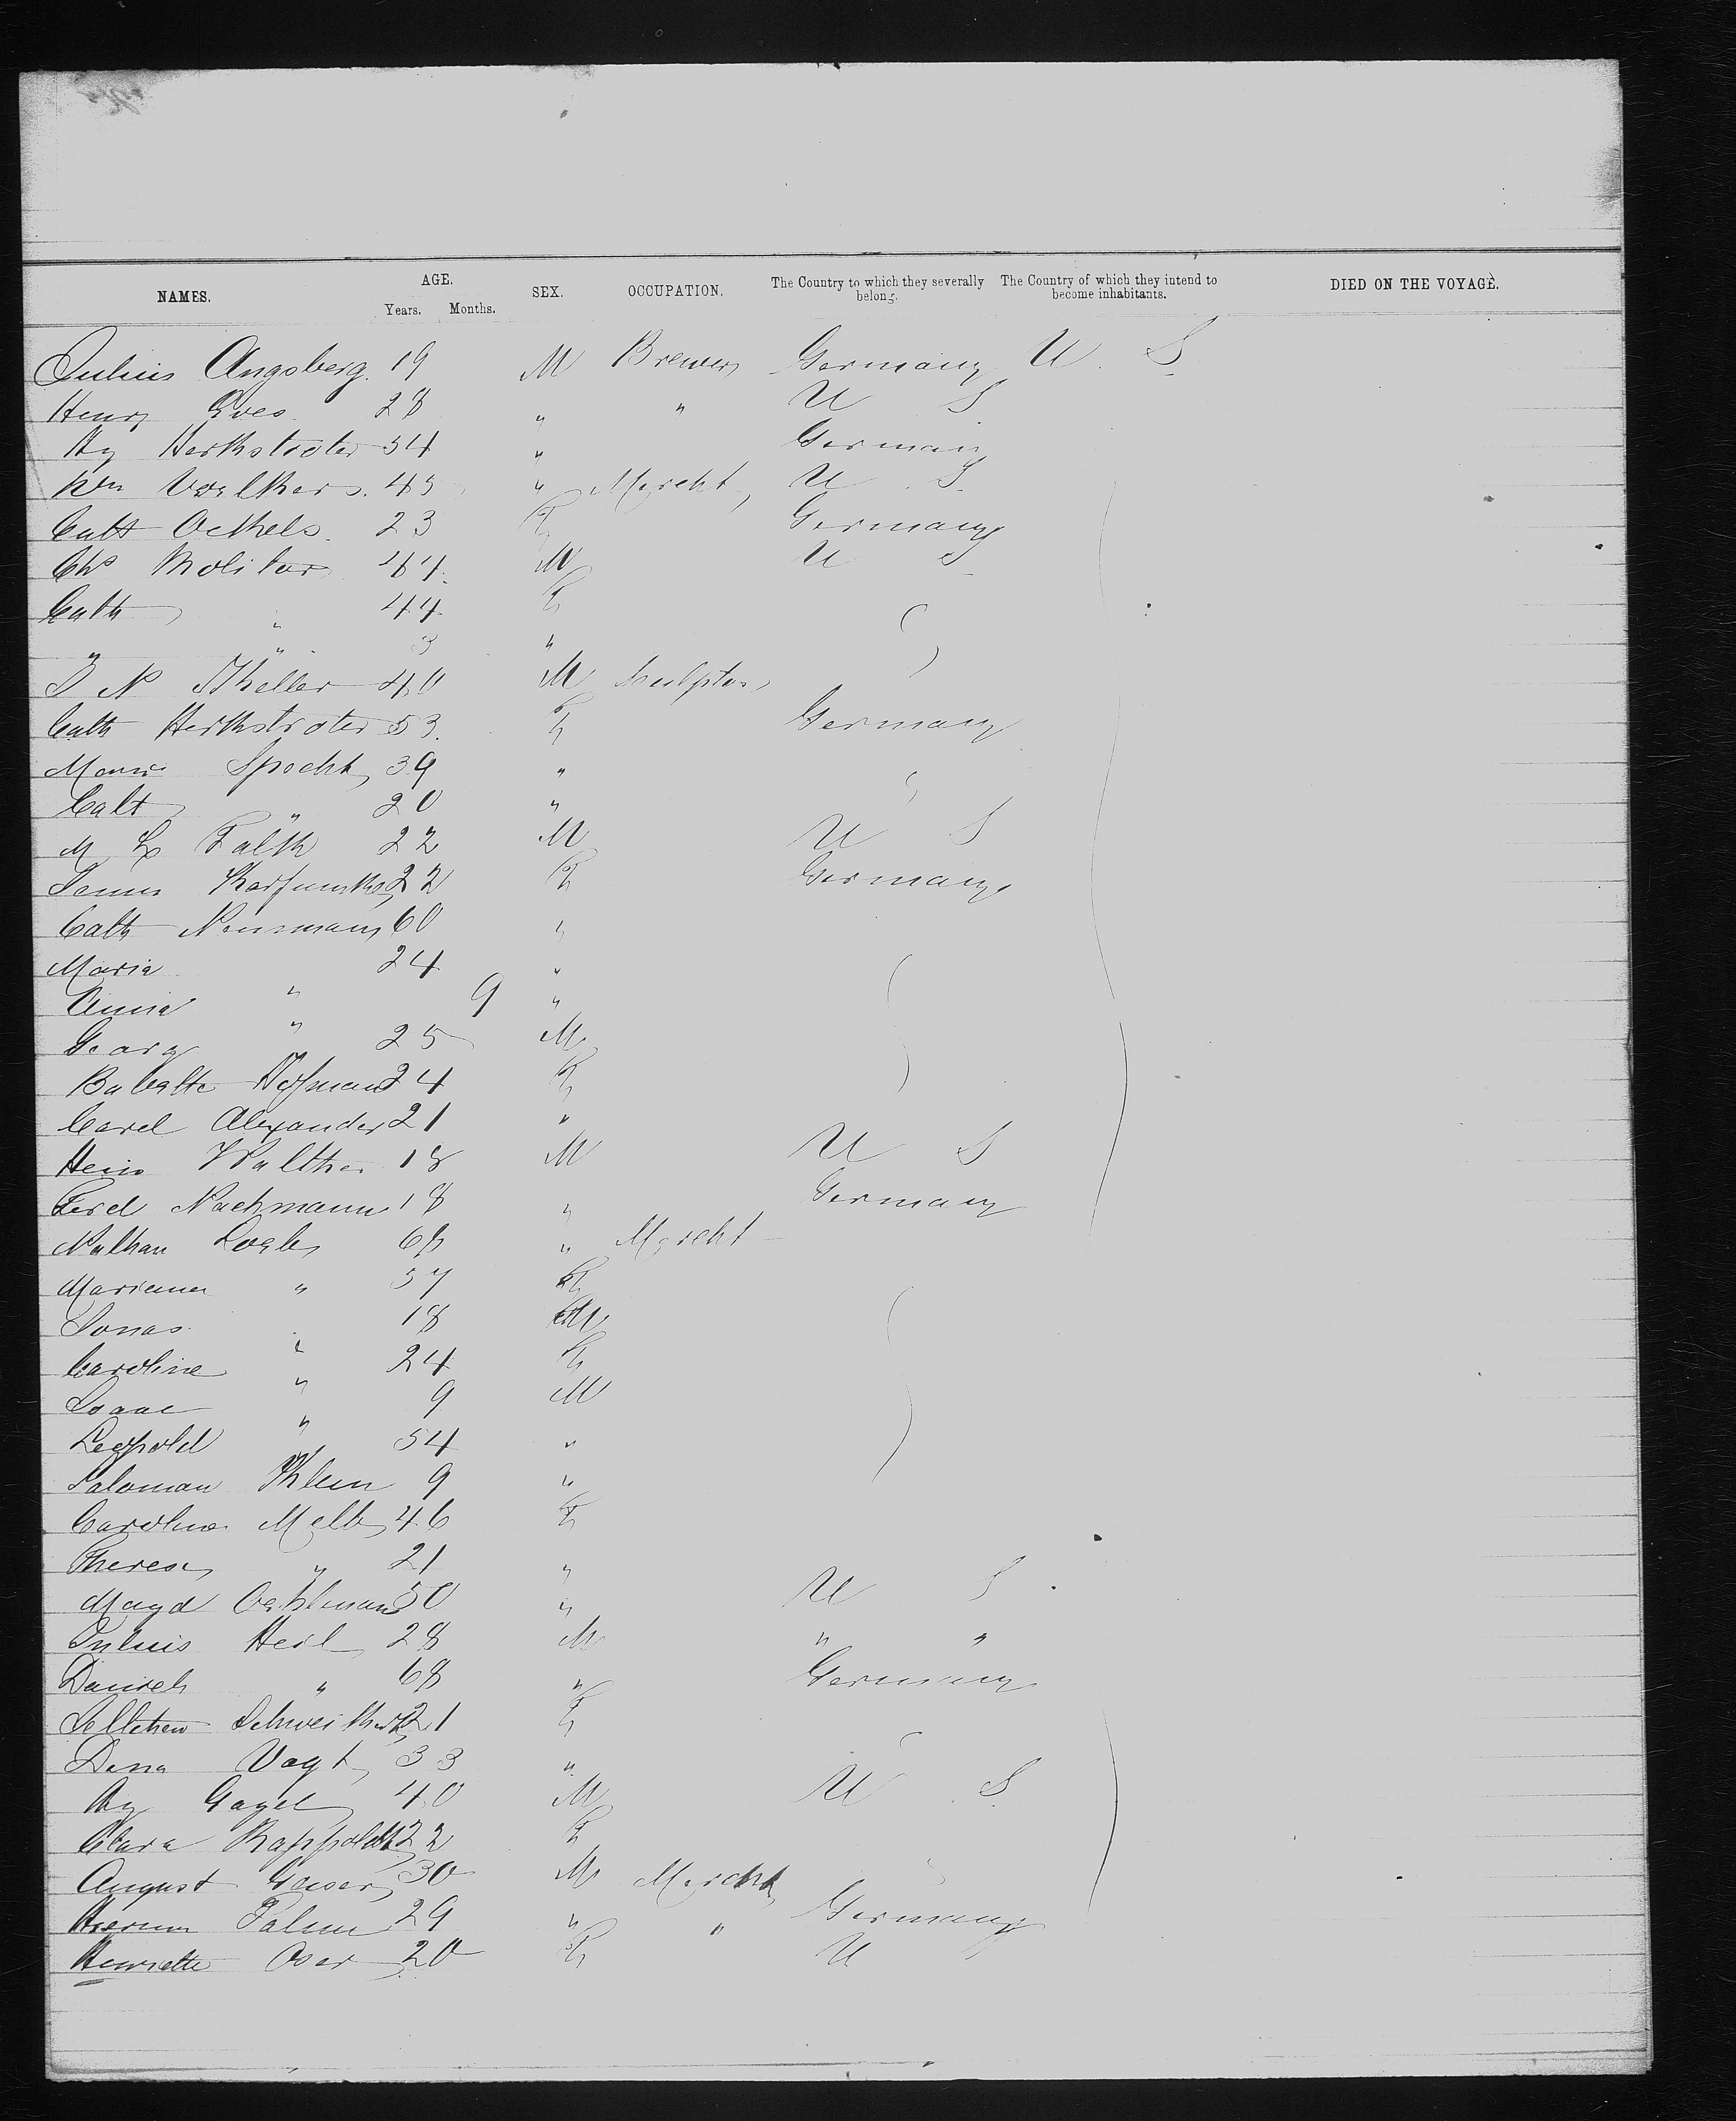 NAMES. AGE. Years. Months. SEX. OCCUPATION. The Country to which they severally belong. The Country of which they intend to become inhabitants. DIED ON THE VOYAGE.
Julius Angsberg. 19 M Brewer Germany U S
Henry 28 " " U S
Hy Herkstroter 54 " Germany
Wm Voelkers. 45 " Mercht U S
Cath Oethels. 23 F Germany
Chs Molitor 44 M U S
Cath " 44 F
" " 3 "
J N Kheller 40 M Sculptor
Cath Herkstroter 53 F Germany
Specht 39 "
Cath " 20 "
M L Falk 22 M U S
22 F Germany
Cath Neumann 60 "
Maria " 24 "
Anna " 9 "
Georg 25 M
Babette Hofmann 24 F
Carol Alexander 21 "
Walther 18 M U S
Ferd Nachmann 18 " Germany
Nathan Loeb 68 " Mercht
Mariana " 57 F
Jonas " 18 M
Caroline " 24 F
Isaac " 9 M
Leopold 54 "
Saloman Klein 9 "
Caroline 46 F
Therese " 21 "
Magd 50 " U S
Julius Heil 28 M " "
Daniel " 68 " Germany
21 F
Dena Vogt 33 "
Hy Gagel 40 M U S
Clara Rappoldt 22 F
August 30 M Mercht
29 " " Germany
Henriette Oser 20 F U